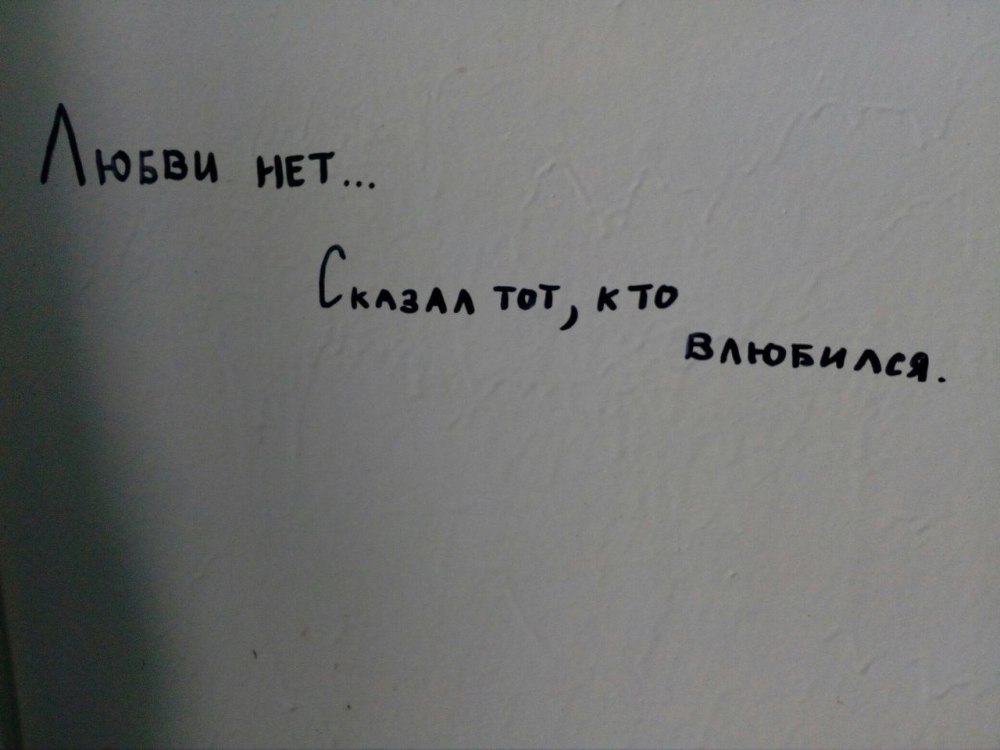 Любви нет...
Сказал тот, кто
влюбился.